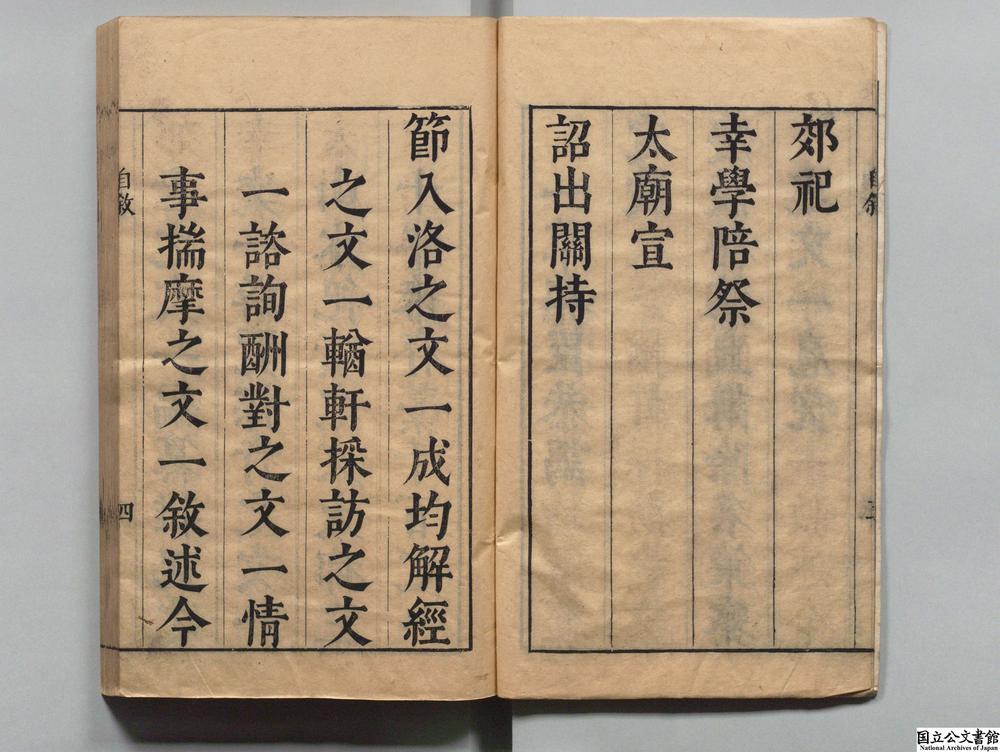 郊祀
幸學陪祭
太廟宣
詔出關持
節入洛之文一成均解經
之文一輶軒採訪之文
一諮詢酬對之文一情
事揣摩之文一敘述今
自敘
四
国立公文書館
National Archives of Japan